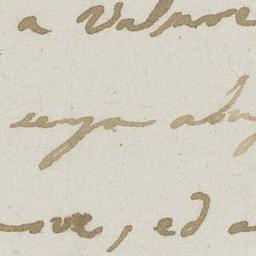 a Valmore
senza abu
ove, ed a